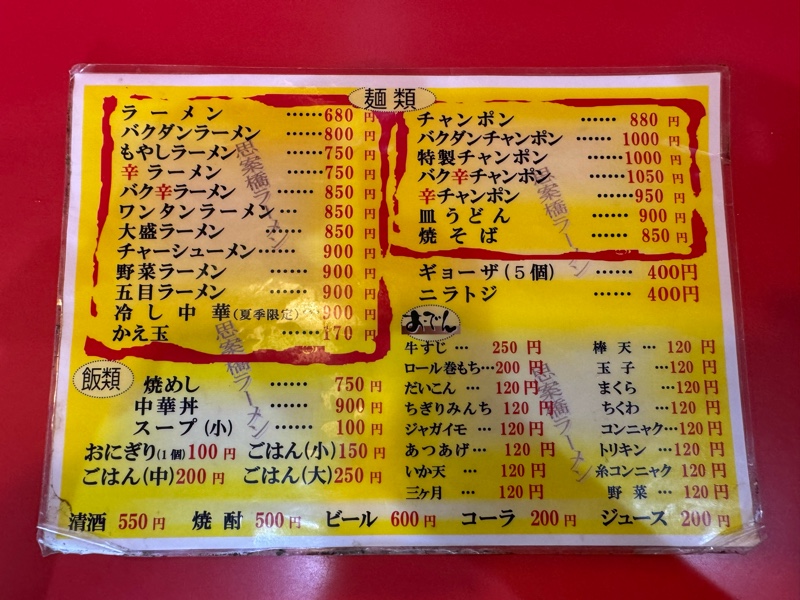 麺類
ラーメン ……680円
バクダンラーメン ……800円
もやしラーメン ……750円
辛ラーメン ……750円
バク辛ラーメン …… 850円
ワンタンラーメン … 850円
大盛ラーメン …… 850円
チャーシューメン…… 900円
野菜ラーメン …… 900円
五目ラーメン …… 900円
冷し中華(夏季限定)… 900円
かえ玉 ……170円
チャンポン …… 880円
バクダンチャンポン …… 1000円
特製チャンポン ……1000円
バク辛チャンポン ……1050円
辛チャンポン ……950円
皿うどん …… 900円
焼そば …… 850円
ギョーザ(5個) …… 400円
ニラトジ …… 400円
飯類
焼めし …… 750円
中華丼 …… 900円
スープ(小) …… 100円
おにぎり(1個)100円 ごはん(小)150円
ごはん(中)200円 ごはん(大)250円
おでん
牛すじ … 250円 棒天 … 120円
ロール巻もち…200円 玉子 … 120円
だいこん … 120円 まくら …120円
ちぎりみんち 120円 ちくわ … 120円
ジャガイモ … 120円 コンニャク…120円
あつあげ… 120円 トリキン …120円
いか天 … 120円 糸コンニャク 120円
三ヶ月 … 120円 野菜 … 120円
清酒 550円 焼酎 500円 ビール 600円 コーラ 200円 ジュース 200円
思案橋ラーメン
思案橋ラーメン
思案橋ラーメン
思案橋ラーメン